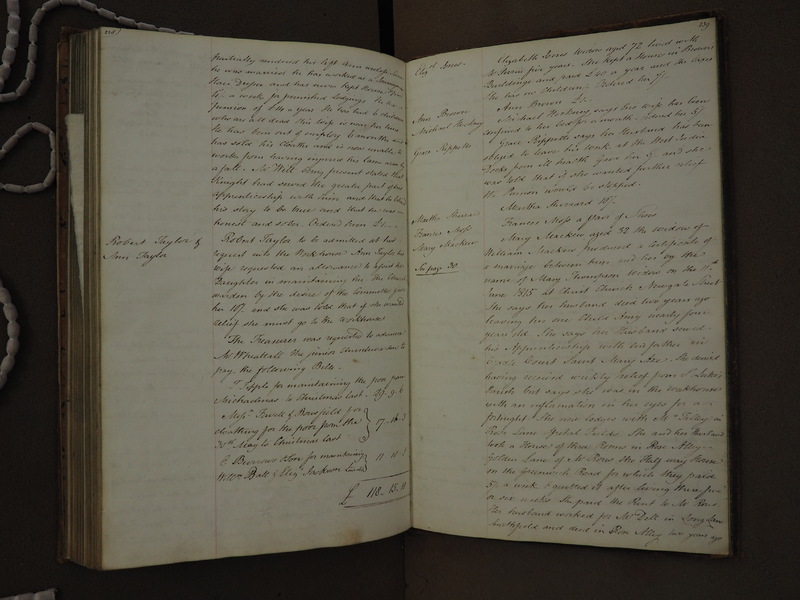 238
particularly
he was married he has worked as a
and has never kept House
a week for furnished lodgings He has a
pension of £10 a year He has had
who are all dead His wife is now
He has been out of employ 6 months and
has sold his Cloaths and is now unable to
work from having injured his lame arm by
a fall. Mr Willm Bury present stated that
Knight had served the greater part of his
apprenticeship with him and that he believed
his story to be true and that he was
honest and sober. Ordered him £1.—
Robert Taylor &
Ann Taylor
Robert Taylor to be admitted at his
request into the Workhouse Ann Taylor his
wife requested an allowance to assist her
Daughter in maintaining her The Church
warden by the desire of the Committee gave
her 10/. and she was told that if she wanted
relief she must go to the workhouse
The Treasurer was requested to advance
Mr Wheatall the junior Churchwarden to
pay the following Bills.
T Tipple for maintaining the poor from
Michaelmas to Christmas last. 89. 9. 6
Messrs Jewell & Bousfield for
cloathing for the poor from the
30th May to Christmas last
17 - 16 - 3
for maintaining
Willm Ball & Eliz. Jackson
£ 118 - 15. 11
239
Elizh Jones
Elizabeth Jones Widow aged 72 lived with
Mr five years. She kept a House in Brown's
Buildings and paid £40 a year and the taxes
She has no Children. Ordered her 7/.
Ann Brown
Ann Brown £1.
Michael Hockney
Michael Hockney says his wife has been
confined to her bed for a month. Ordered her 5/.
Grace Peppetts
Grace Peppetts says her Husband has been
obliged to leave his work at the West India
Docks from ill health Gave him 5/. and she
was told that if she wanted further relief
the Pension would be stopped.
Martha Sherrard 10/.
Frances Moss
Frances Moss a pair of Shoes
Mary Mackew
Mary Mackew aged 52 the widow of
William Mackew produced a Certificate of
a marriage between him and her by the
name of Mary Thompson Widow on the 11th
June 1815 at Christ Church Newgate Street
She says her husband died two years ago
leaving her one Child Amy nearly four
years old. She says her Husband served
his Apprenticeship with his father in
Court Saint Mary Axe. She denied
having received weekly relief from St Luke's
Parish but says she was in the workhouse
with an inflamation in her eyes for a
fortnight. She now lodges with Mr
Rose Lane Spital fields. She and her Husband
took a House of three Rooms in Rose Alley
Golden Lane of Mr Rowe the Half way House
on the Greenwich Road for which they paid
5/. a week & quitted it after living there five
or six weeks. She paid the Rent to Mr Rowe
Her husband worked for Mr Dell in Long Lane
Smithfield and died in Rose Alley two years ago
See page 30